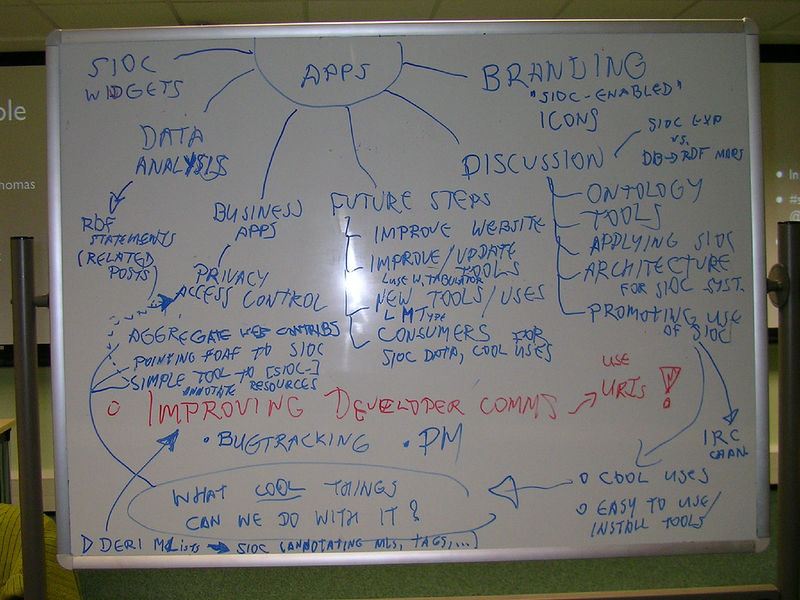 SIOC
WIDGETS
APPS
BRANDING
"SIOC-ENABLED"
ICONS
DATA
ANALYSIS
RDF
STATEMENTS
(RELATED
POSTS)
BUSINESS
APPS
PRIVACY
ACCESS CONTROL
AGGREGATE WEB CONTRIBS
POINTING FOAF TO SIOC
SIMPLE TOOL TO [SIOC-]
ANNOTATE RESOURCES
FUTURE STEPS
IMPROVE WEBSITE
IMPROVE/UPDATE
TOOLS
(USE W. TABULATOR
NEW TOOLS/USES
MTYPE
CONSUMERS FOR
SIOC DATA, COOL USES
DISCUSSION
SIOC EXP
VS.
DB→RDF MAPS
ONTOLOGY
TOOLS
APPLYING SIOC
ARCHITECTURE
FOR SIOC SYST.
PROMOTING USE
OF SIOC
IRC
CHAN
○ IMPROVING DEVELOPER COMMS → USE
URIS !
• BUGTRACKING • PM
WHAT COOL THINGS
CAN WE DO WITH IT?
○ COOL USES
○ EASY TO USE/
INSTALL TOOLS
▷ DERI MLists → SIOC (ANNOTATING MLS, TAGS,...)
ple
homas
• In
• #s
@